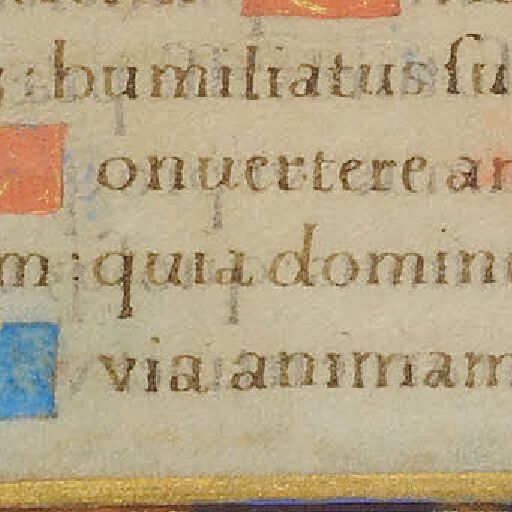 : humiliatus su
onuertere an
m : quia domin
via animam